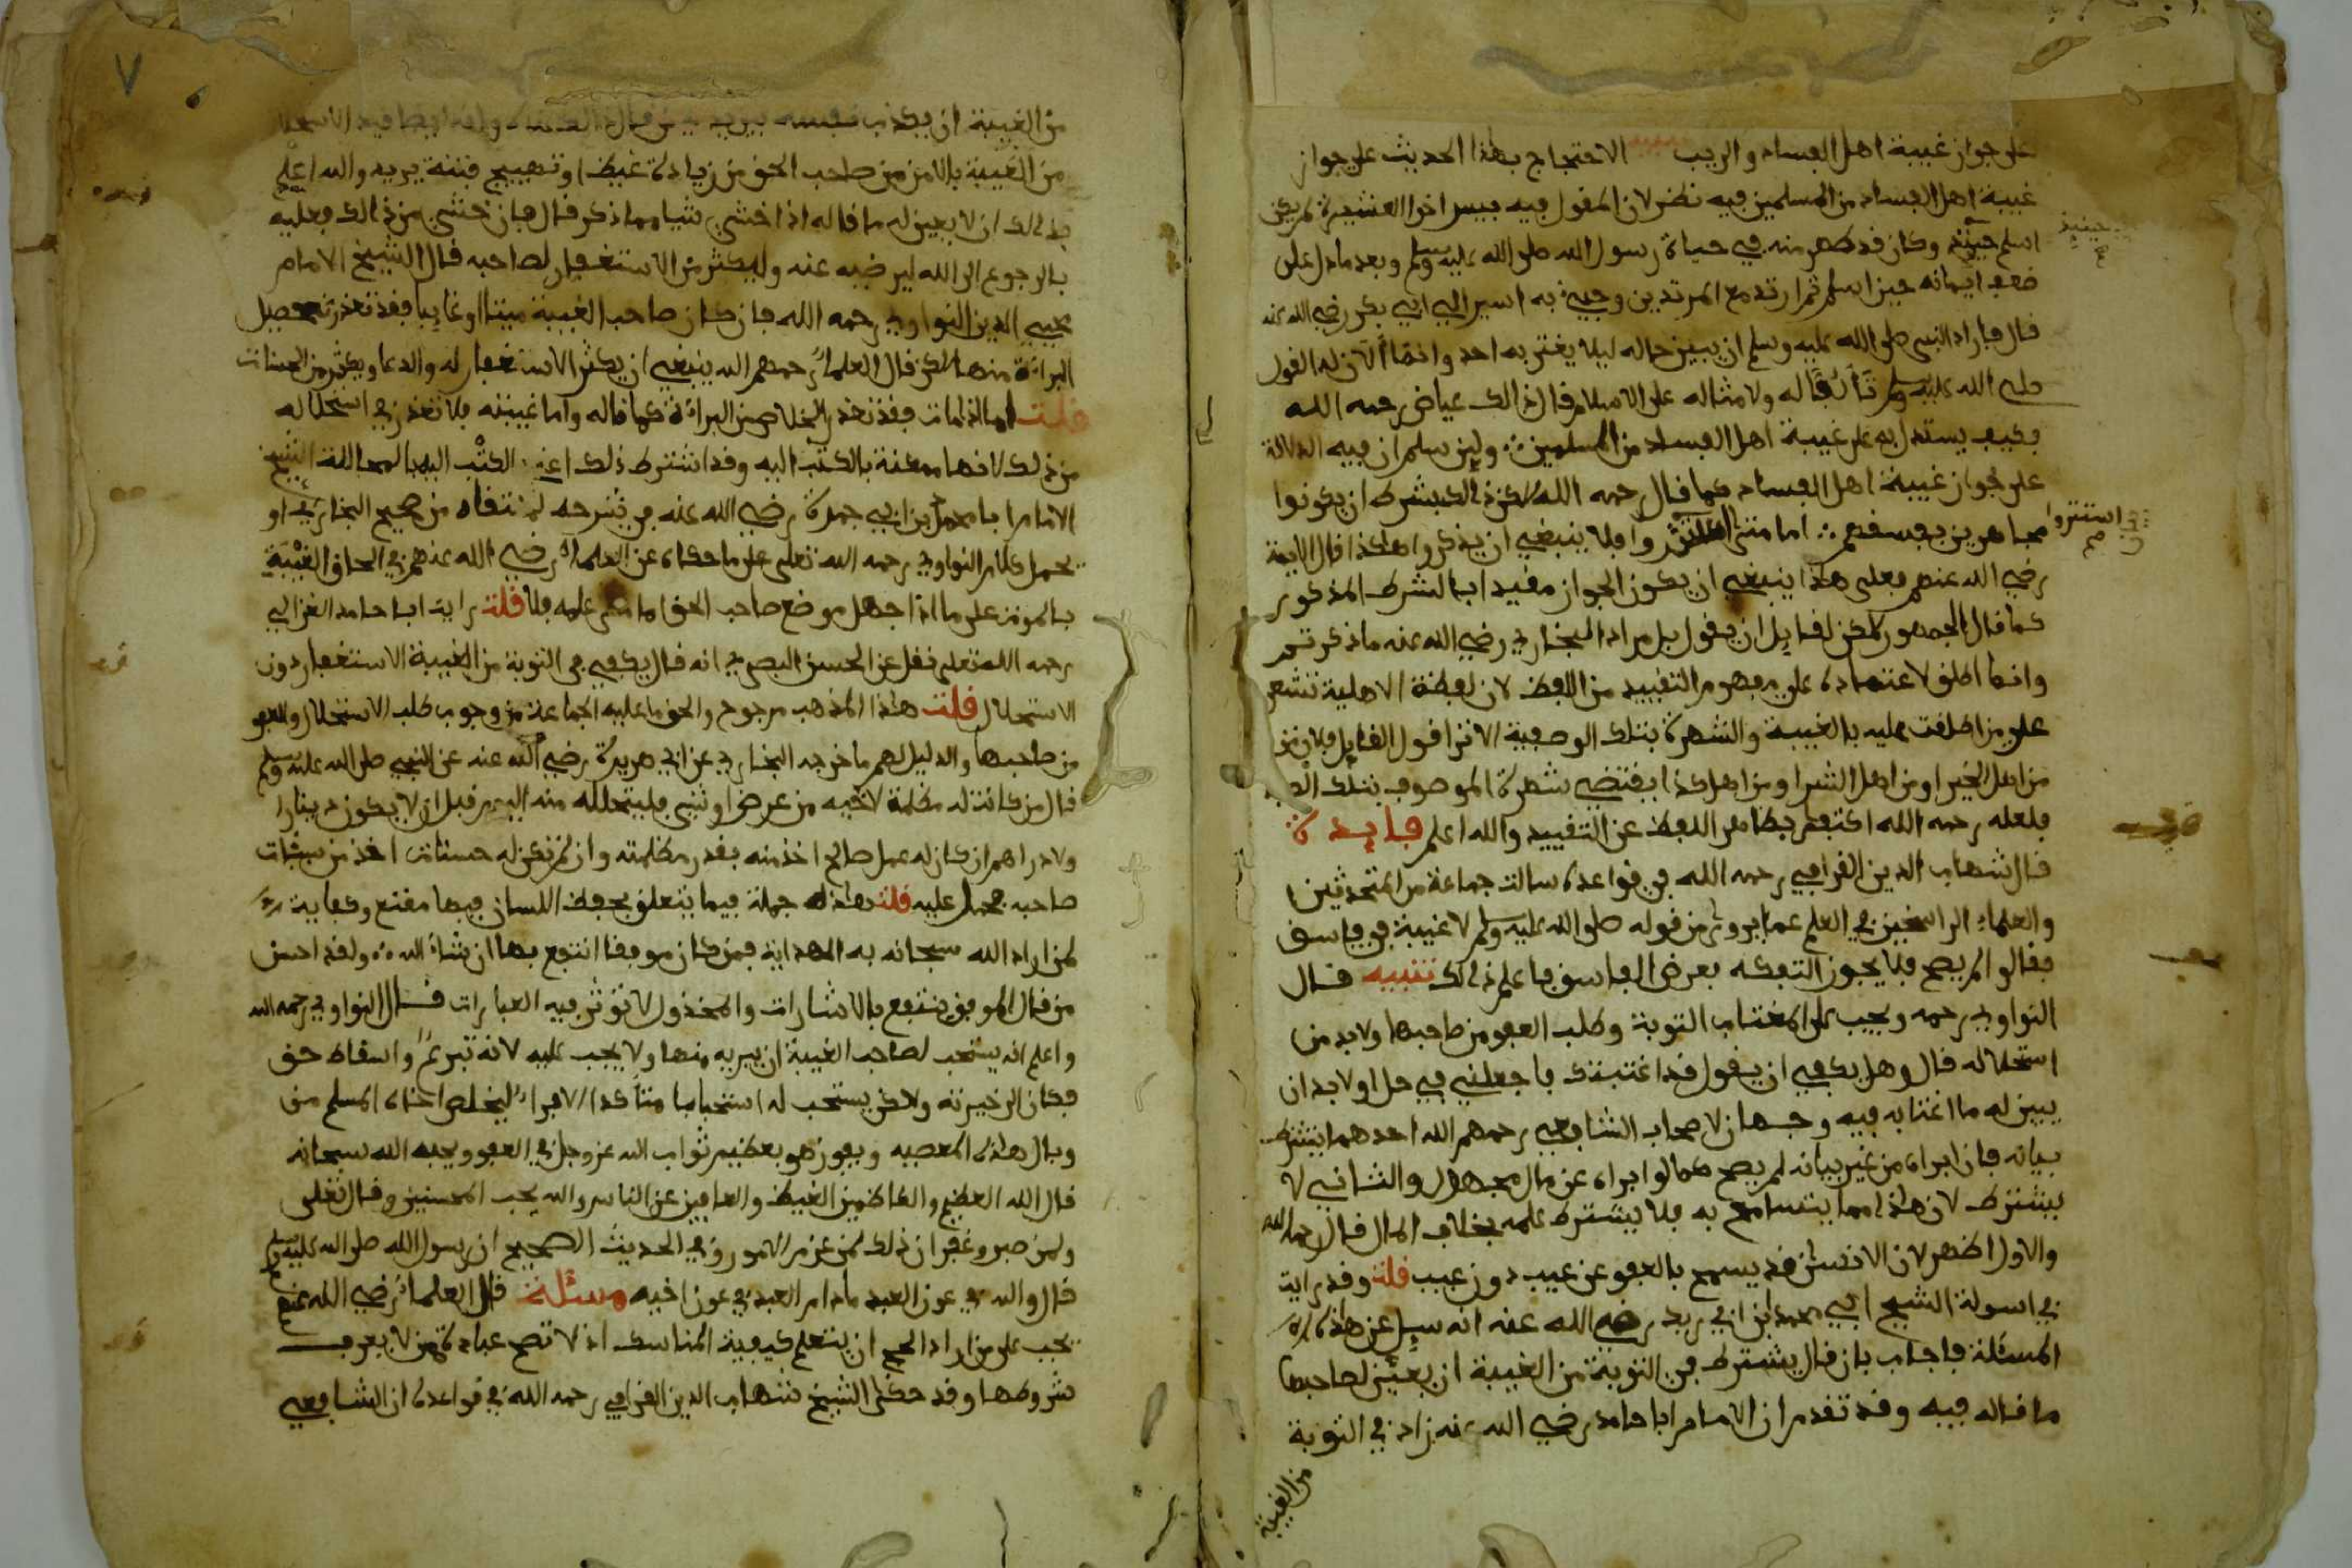 على جواز غيبة اهل الفساد والريب تنبيه الاحتجاج بهذا الحديث على جواز
غيبة اهل الفساد من المسلمين فيه نظر لان المقول فيه بيس اخوا العشيرة لم يكن
اسلم حينئذ وكان قد ظهر منه في حياة رسول الله صلى الله عليه وسلم وبعده ما دل على
حينيذ
ضعف ايمانه حين اسلم ثم ارتد مع المرتدين وجيء به اسير الي ابي بكر رضي الله عنه
قال فاراد النبي صلى الله عليه وسلم ان يبين حاله ليلا يغتر به احد وانما ألان له القول
صلى الله عليه وسلم تألفا له ولامثاله على الاسلام قال ذالك عياض رحمه الله
فكيف يستدل به على غيبة اهل الفساد من المسلمين ولين سلم ان فيه الدلالة
على جواز غيبة اهل الفساد كما قال رحمه الله لكن ذلك بشرط ان يكونوا
مجاهرين بفسقهم اما متى استتروا فلا ينبغي ان يذكروا هكذا قال الايمة
استتروا
رضي الله عنهم فعلى هذا ينبغي ان يكون الجواز مقيدا بالشرط المذكور
كما قال الجمهور لكن لقايل ان يقول بل مراد البخاري رضي الله عنه ما ذكرتم
وانما اطلق لاعتماده على مفهوم التقييد من اللفظ لان لفظة الاهلية تشعر
على من اطلقت عليه بالغيبة والشهرة بتلك الوصفية الا ترا قول القايل فلان من
من اهل الخير او من اهل الشر او من اهل كذا يقتضي شهرة الموصوف بتلك
فلعله رحمه الله اكتفى بظاهر اللفظ عن التقييد والله اعلم فايدة
قال شهاب الدين القرافي رحمه الله في قواعده سالت جماعة من المتحدثين
والعلماء الراسخين في العلم عما يروى من قوله صلى الله عليه وسلم لا غيبة في فاسق
فقالوا لم يصح فلا يجوز التفكه بعرض الفاسق فاعلم ذالك تنبيه قال
النواوي رحمه ويجب على المغتاب التوبة وطلب العفو من صاحبها ولابد من
استحلاله قال وهل يكفي ان يقول قد اغتبتك فاجعلني في حل او لابد ان
يبين له ما اغتابه فيه وجهان لاصحاب الشافعي رحمهم الله احدهما يشترط
بيانه فان ابراه من غير بيانه لم يصح كما لو ابراه عن مال مجهول والثاني لا
يشترط لان هذا مما يتسامح به فلا يشترط علمه بخلاف المال قال رحمه الله
والاول اظهر لان الانسان قد يسمح بالعفو عن عيب دون عيب قلت وقد رايت
في اسولة الشيخ ابي محمد ابن ابي زيد رضي الله عنه انه سيل عن هذه
المسئلة فاجاب بان قال يشترط في التوبة من الغيبة ان يعين لصاحبها
ما قاله فيه وقد تقدم ان الامام ابا حامد رضي الله عنه زاد في التوبة
من الغيبة
٧
من الغيبة ان يكذب نفسه
من الغيبة بالامن من صاحب الحق من زيادة غيظ او تهييج فتنة يريد والله اعلم
بذالك ان لا يعين له ما قاله اذا خشي شيا مما ذكر قال فان خشي من ذالك فعليه
بالرجوع الى الله ليرضيه عنه وليكثر من الاستغفار لصاحبه قال الشيخ الامام
محيي الدين النواوي رحمه الله فان كان صاحب الغيبة ميتا او غايبا فقد تعذر تحصيل
البراة منها لكن قال العلماء رحمهم الله ينبغي ان يكثر الاستغفار له والدعا ويكثر من الحسنات
قلت اما ان مات فقد تعذر الخلاص من البراة كما قاله واما غيبته فلا تعذر في استحلاله
من ذلك لانها ممكنة بالكتب اليه وقد اشترط ذلك اعني الكتب اليه بالمحاللة الشيخ
الامام ابا محمد بن ابي جمرة رضي الله عنه في شرحه لم انتقاه من صحيح البخاري او
يحمل كلام النواوي رحمه الله تعلى على ما حكاه عن العلماء رضي الله عنهم في الحاق الغيبة
بالموت على ما اذا جهل موضع صاحب الحق اما متى علمه فلا قلت رايت ابا حامد الغزالي
رحمه الله تعلى نقل عن الحسن البصري انه قال يكفي في التوبة من الغيبة الاستغفار دون
الاستحلال قلت هذا المذهب مرجوح والحق ما عليه الجماعة من وجوب طلب الاستحلال والعفو
من صاحبها والدليل لهم ما خرجه البخاري عن ابي هريرة رضي الله عنه عن النبي صلى الله عليه وسلم
قال من كانت له مظلمة لاخيه من عرض او شي فليتحلله منه اليوم قبل ان لا يكون دينارا
ولا دراهم ان كان له عمل صالح اخذ منه بقدر مظلمته وان لم تكن له حسنات اخذ من سيئات
صاحبه فحمل عليه قلت هذه جملة فيما يتعلق بحفظ اللسان فيها مقنع وكفاية
لمن اراد الله سبحانه به الهداية فمن كان موفقا انتفع بها ان شاء الله ولقد احسن
من قال الموفق ينتفع بالاشارات والمخذول لا تؤثر فيه العبارات قال النواوي رحمه الله
واعلم انه يستحب لصاحب الغيبة ان يبريه منها ولا يجب عليه لانه تبرع واسقاط حق
فكان الى خيرته ولاكن يستحب له استحبابا متأكدا الابراء ليخلص اخاه المسلم من
وبال هذه المعصيه ويفوز هو بعظيم ثواب الله عز وجل في العفو ويحبه الله سبحانه
قال الله العظيم والكاظمين الغيظ والعافين عن الناس والله يحب المحسنين وقال تعلى
ولمن صبر وغفر ان ذلك لمن عزم الامور وفي الحديث الصحيح ان رسول الله صلى الله عليه وسلم
قال والله في عون العبد مادام العبد في عون اخيه مسئلة قال العلماء رضي الله عنهم
يجب على من اراد الحج ان يتعلم كيفية المناسك اذ لا تصح عبادة ممن لا يعرف
شروطها وقد حكى الشيخ شهاب الدين القرافي رحمه الله في قواعده ان الشافعي